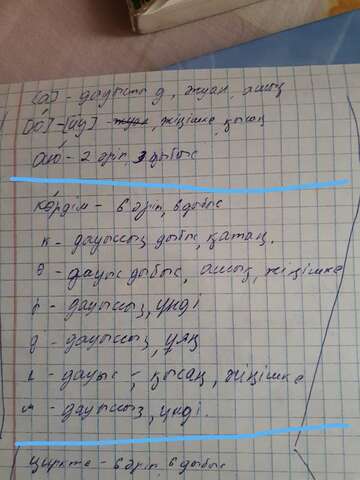 [а] - дауысты д, жуан, ашық
[йӱ] - [йу] - жуан, жіңішке, қысаң
Аю - 2 әріп, 3 дыбыс
көрдім - 6 әріп, 6 дыбыс
к - дауыссыз дыбыс, қатаң.
ө - дауыс дыбыс, ашық, жіңішке
р - дауыссыз, үнді
д - дауыссыз, ұяң
і - дауыс -, қысаң, жіңішке
м - дауыссыз, үнді.
циркте - 6 әріп, 6 дыбыс